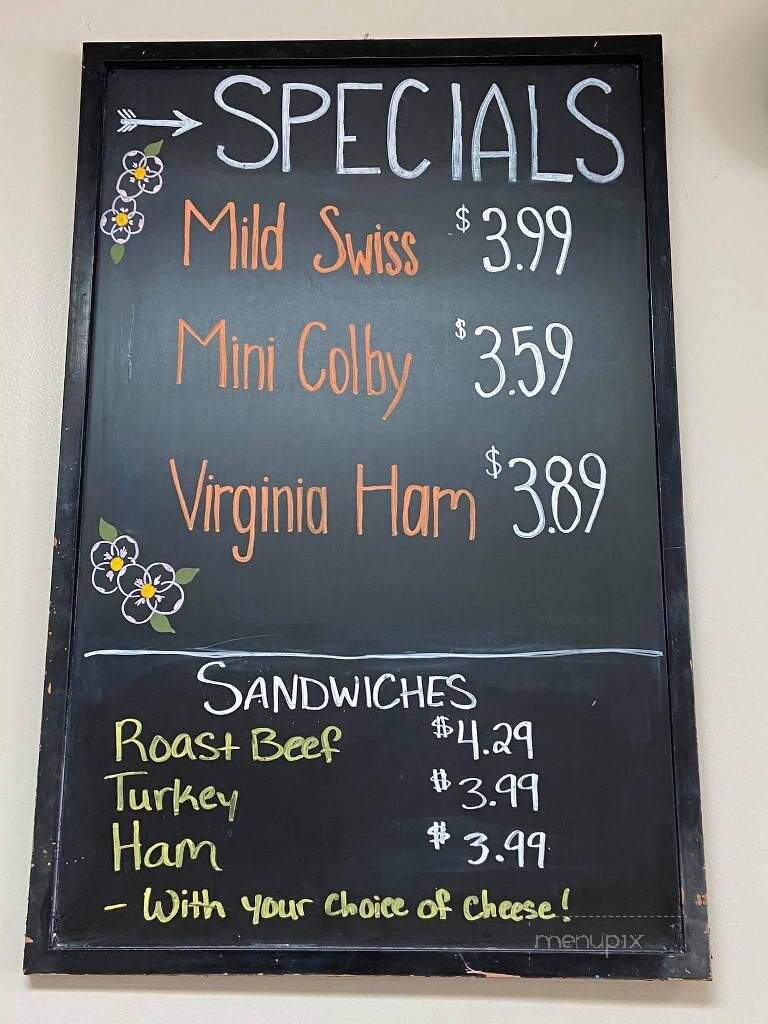 SPECIALS
Mild Swiss $3.99
Mini Colby $3.59
Virginia Ham $3.89
SANDWICHES
Roast Beef $4.29
Turkey $3.99
Ham $3.99
- With your choice of cheese!
menupix